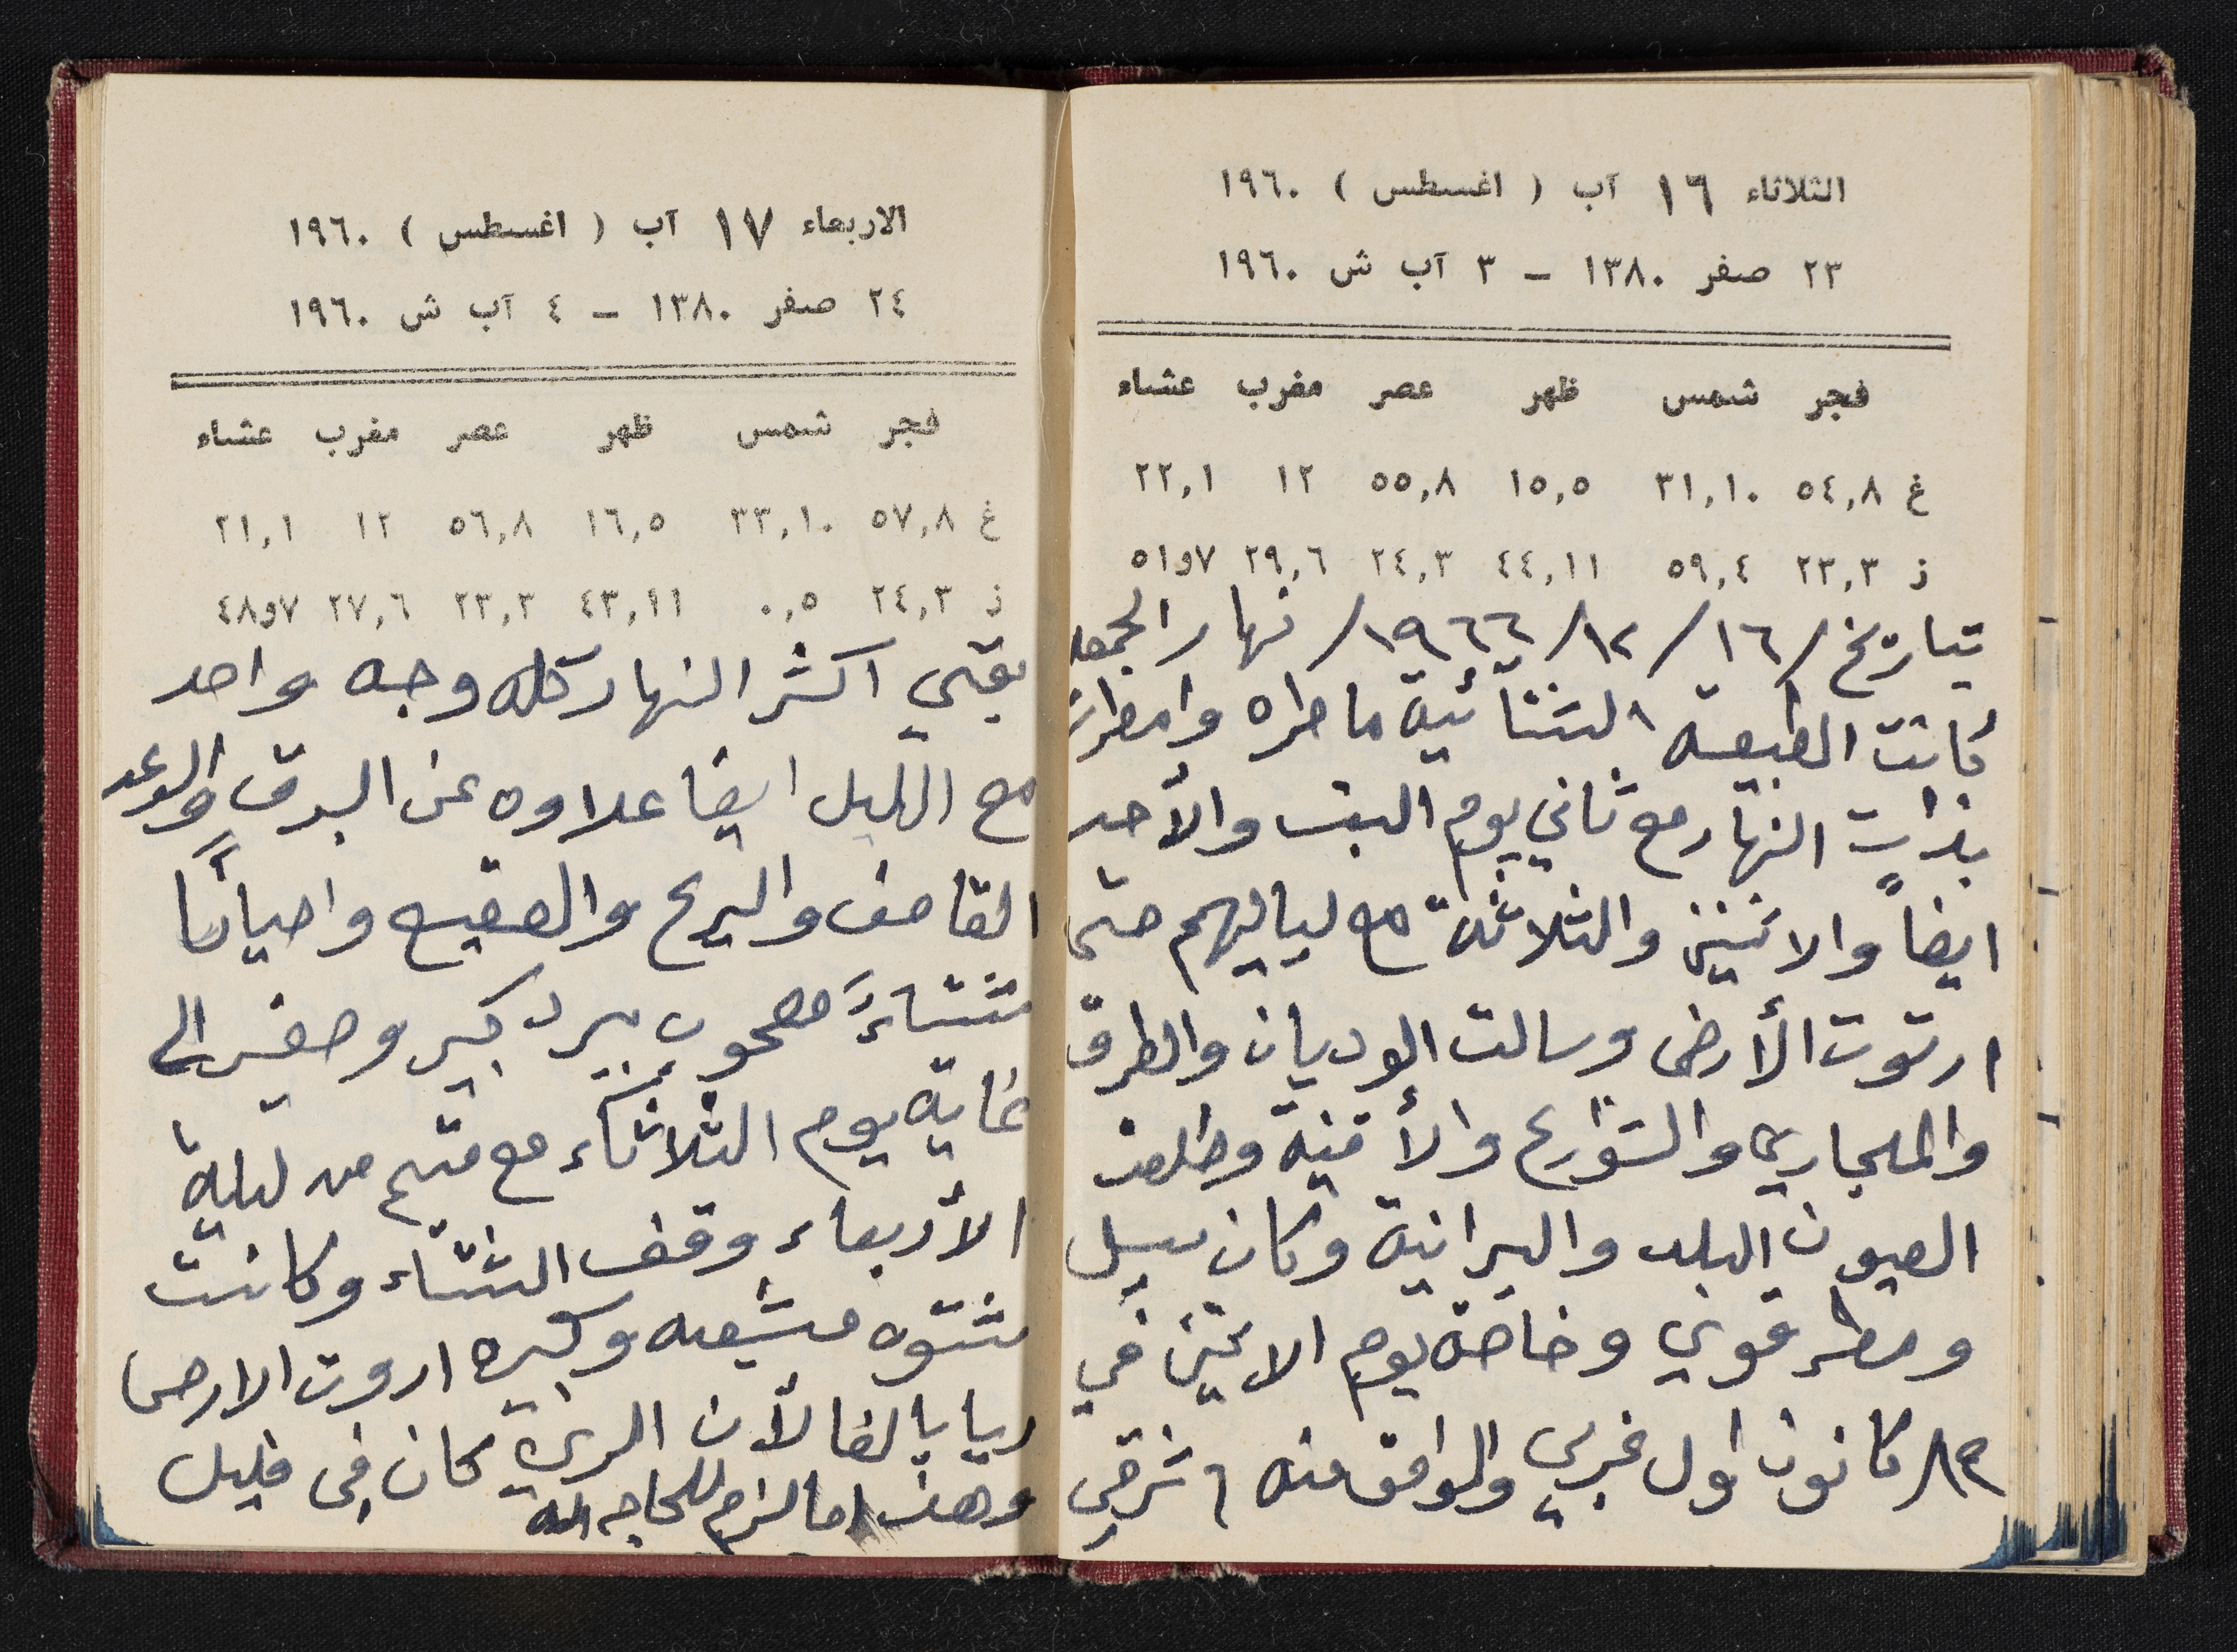 الثلاثاء ١٦ آب ( اغسطس ) ١٩٦٠
٢٣ صفر ١٣٨٠ – ٣ آب ش ١٩٦٠
فجر شمس ظهر عصر مغرب عشاء
غ ٥٤,٨ ٣١,١٠ ١٥,٥ ٥٥,٨ ١٢ ٢٢,١
ز ٢٣,٣ ٥٩,٤ ٤٤,١١ ٢٤,٣ ٢٩,٦ ٧و٥١
بتاريخ /١٦/ ١٢/ ١٩٦٦/ نهار الجمعه
كانت الطبيعة الشتائية ماطره وامطرت
بذات النهار مع ثاني يوم السبت والأحد
ايضاً والاثنين والثلاثة مع لياليهم حتى
ارتوت الأرض وسالت الوديان والطرق
والمجاري والشوارع والأقنية وطلعت
العيون البلد والبرانية وكان سيل
ومطر قوي وخاصة يوم الاثنين في
كانون اول غربي والموافق منه ٦ شرقي
الاربعاء ١٧ آب ( اغسطس ) ١٩٦٠
٢٤ صفر ١٣٨٠ – ٤ آب ش ١٩٦٠
فجر شمس ظهر عصر مغرب عشاء
غ ٥٧,٨ ٣٣,١٠ ١٦,٥ ٥٦,٨ ١٢ ٢١,١
ز ٢٤,٣ ٠,٥ ٤٣,١١ ٢٣,٣ ٢٧,٦ ٧و٤٨
بقي اكثر النهار كله وجه واحد
مع الليل ايضا علاوه عن البرق والرعد
القاصف والريح والصقيع واحياناً
شتاءً مصحوب ببرد كبير وصغير الى
غاية يوم الثلاثاء مع قسم من ليلة
الأربعاء وقف الشتاء وكانت
شتوه مشبعه وكبيره اروت الارض
ريا بالغا لأن الري كان في قليل
وهذا ما لزم للحاجه